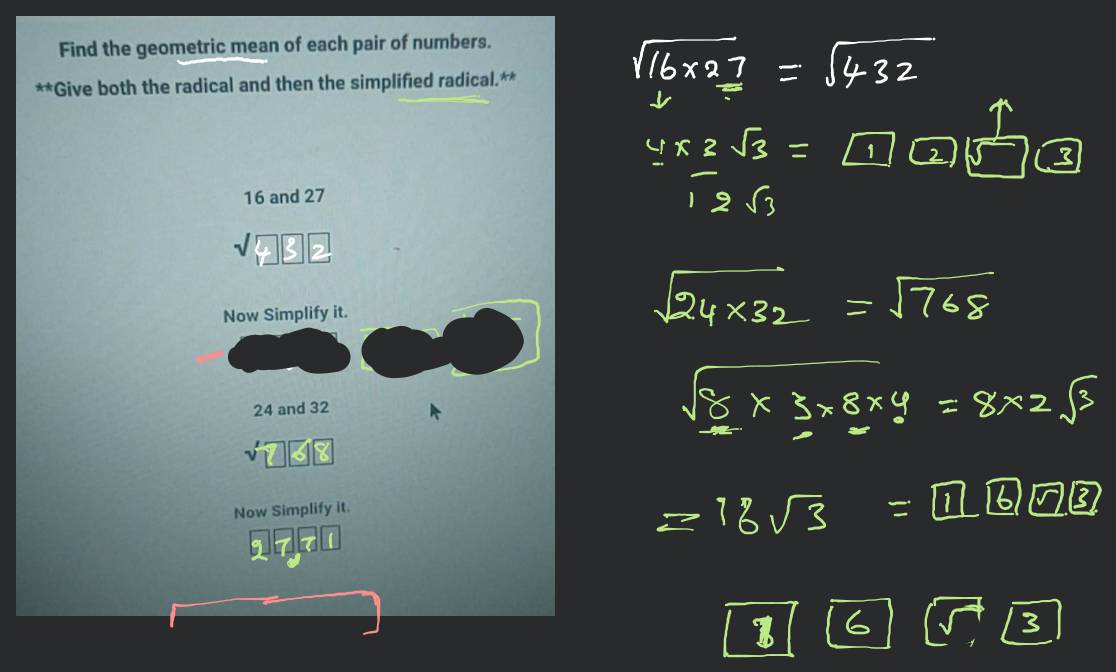 Find the geometric mean of each pair of numbers.
**Give both the radical and then the simplified radical.**
16 and 27
√432
Now Simplify it.
24 and 32
√768
Now Simplify it.
27.71
√16×27 = √432
4×3√3 = 1 2 √ 3
12√3
√24×32 = √768
√8×3×8×4 = 8×2√3
= 16√3 = 1 6 √ 3
1 6 √ 3